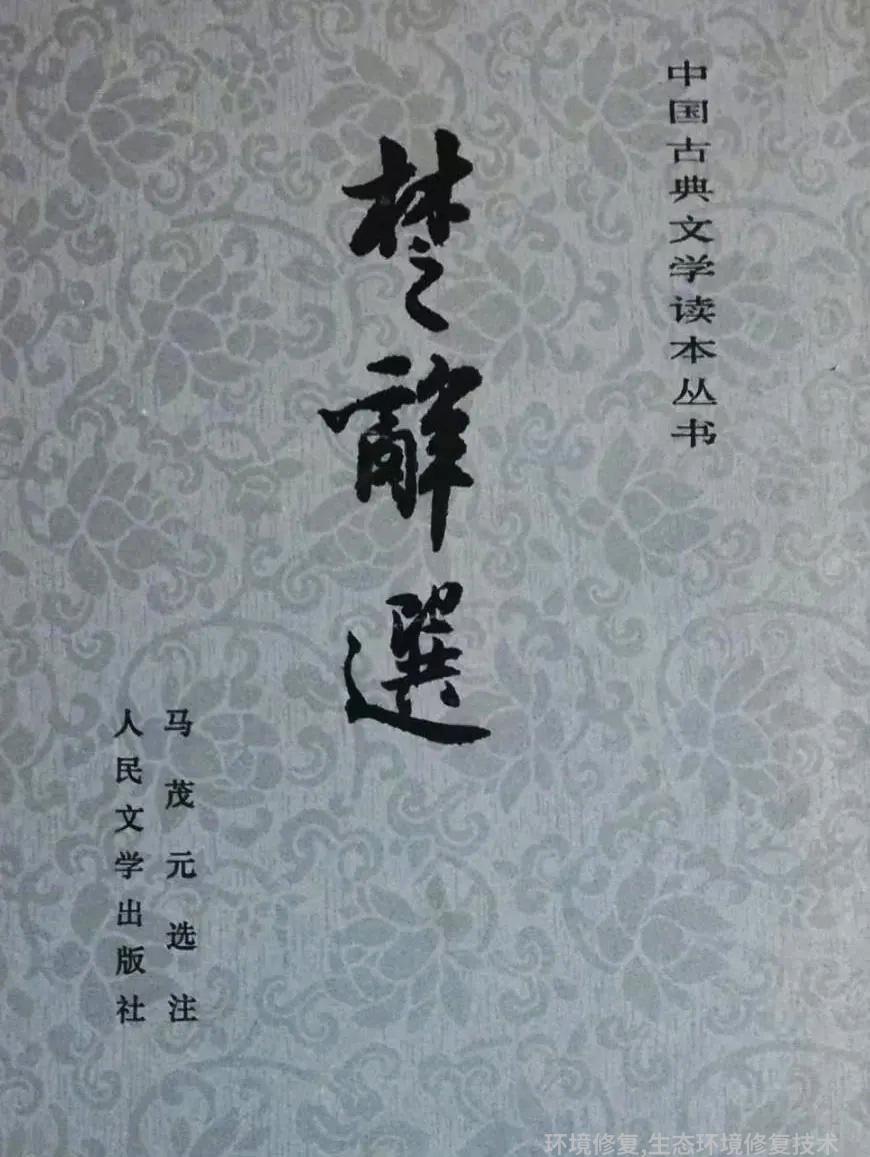 中国古典文学读本丛书
楚辭選
马茂元选注
人民文学出版社
环境修复,生态环境修复技术